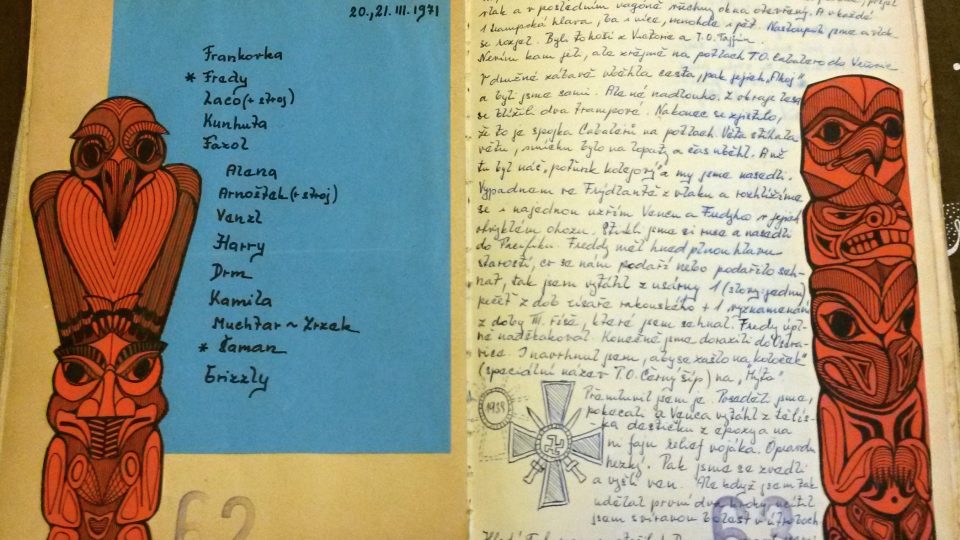 20.,21. III. 1971
Frankovka
* Fredy
Laco (+ stroj)
Kunhuta
Farol
Alena
Arnoštek (+ stroj)
Venzl
Harry
Drm
Kamila
Muchtar ~ Zrzek
* Šaman
Grizzly
62
vlak a v posledním vagóně všechny okna otevřený. A v každé
1 trampská hlava, ba i více, mnohde i pět. Nastoupili jme a vlak
se rozjel. Byli to hoši z a T.O. Tajfun.
Nevím kam jeli, ale zřejmě na potlach T.O. Cabalero do
V družné zábavě uběhla cesta, pak jejich „Ahoj"
a byli jsme sami. Ale né nadlouho. Z okraje lesa
se blížili dva trampové. Nakonec se zjistilo,
že to je spojka Cabalérů na potlach. Věta stíhala
větu, smíchu bylo na lopaty a čas uběhl. A už
tu byl náš „poturik kolejový" a my jsme nasedli.
Vypadnem ve Frýdlantě z vlaku a rozhlížíme
se i najednou uzřím Vencu a Fredyho v
obvyklém ohozu. Stiskli jsme si ruce a nasedli
do Pacifiku. Freddy měl hned plnou hlavu
starostí, co se nám podaří nebo podařilo seh-
nat, tak jsem vytáhl z usárny 1 (slovy: jednu)
pečeť z dob císaře rakouského + 1 vyznamenání
z doby III. říše, které jsem sehnal. Fredy úpl-
ně nadskakoval. Konečně jsme dorazili do Ostra-
vice. I navrhnul jsem, aby se zašlo na „koloček"
(speciální název T.O. Černý šíp) na „Mýto"
Přemluvil jsem je. Poseděli jsme,
pokecali a Venca vytáhl z tělís-
ka destičku z epoxy a na
ní faju relief vojáka. Opravdu
hezký. Pak jsme se zvedli
a vyšli ven. Ale když jsem pak
udělal první dva kroky, ucítil
jsem svíravou bolest v útrobách
1939
63